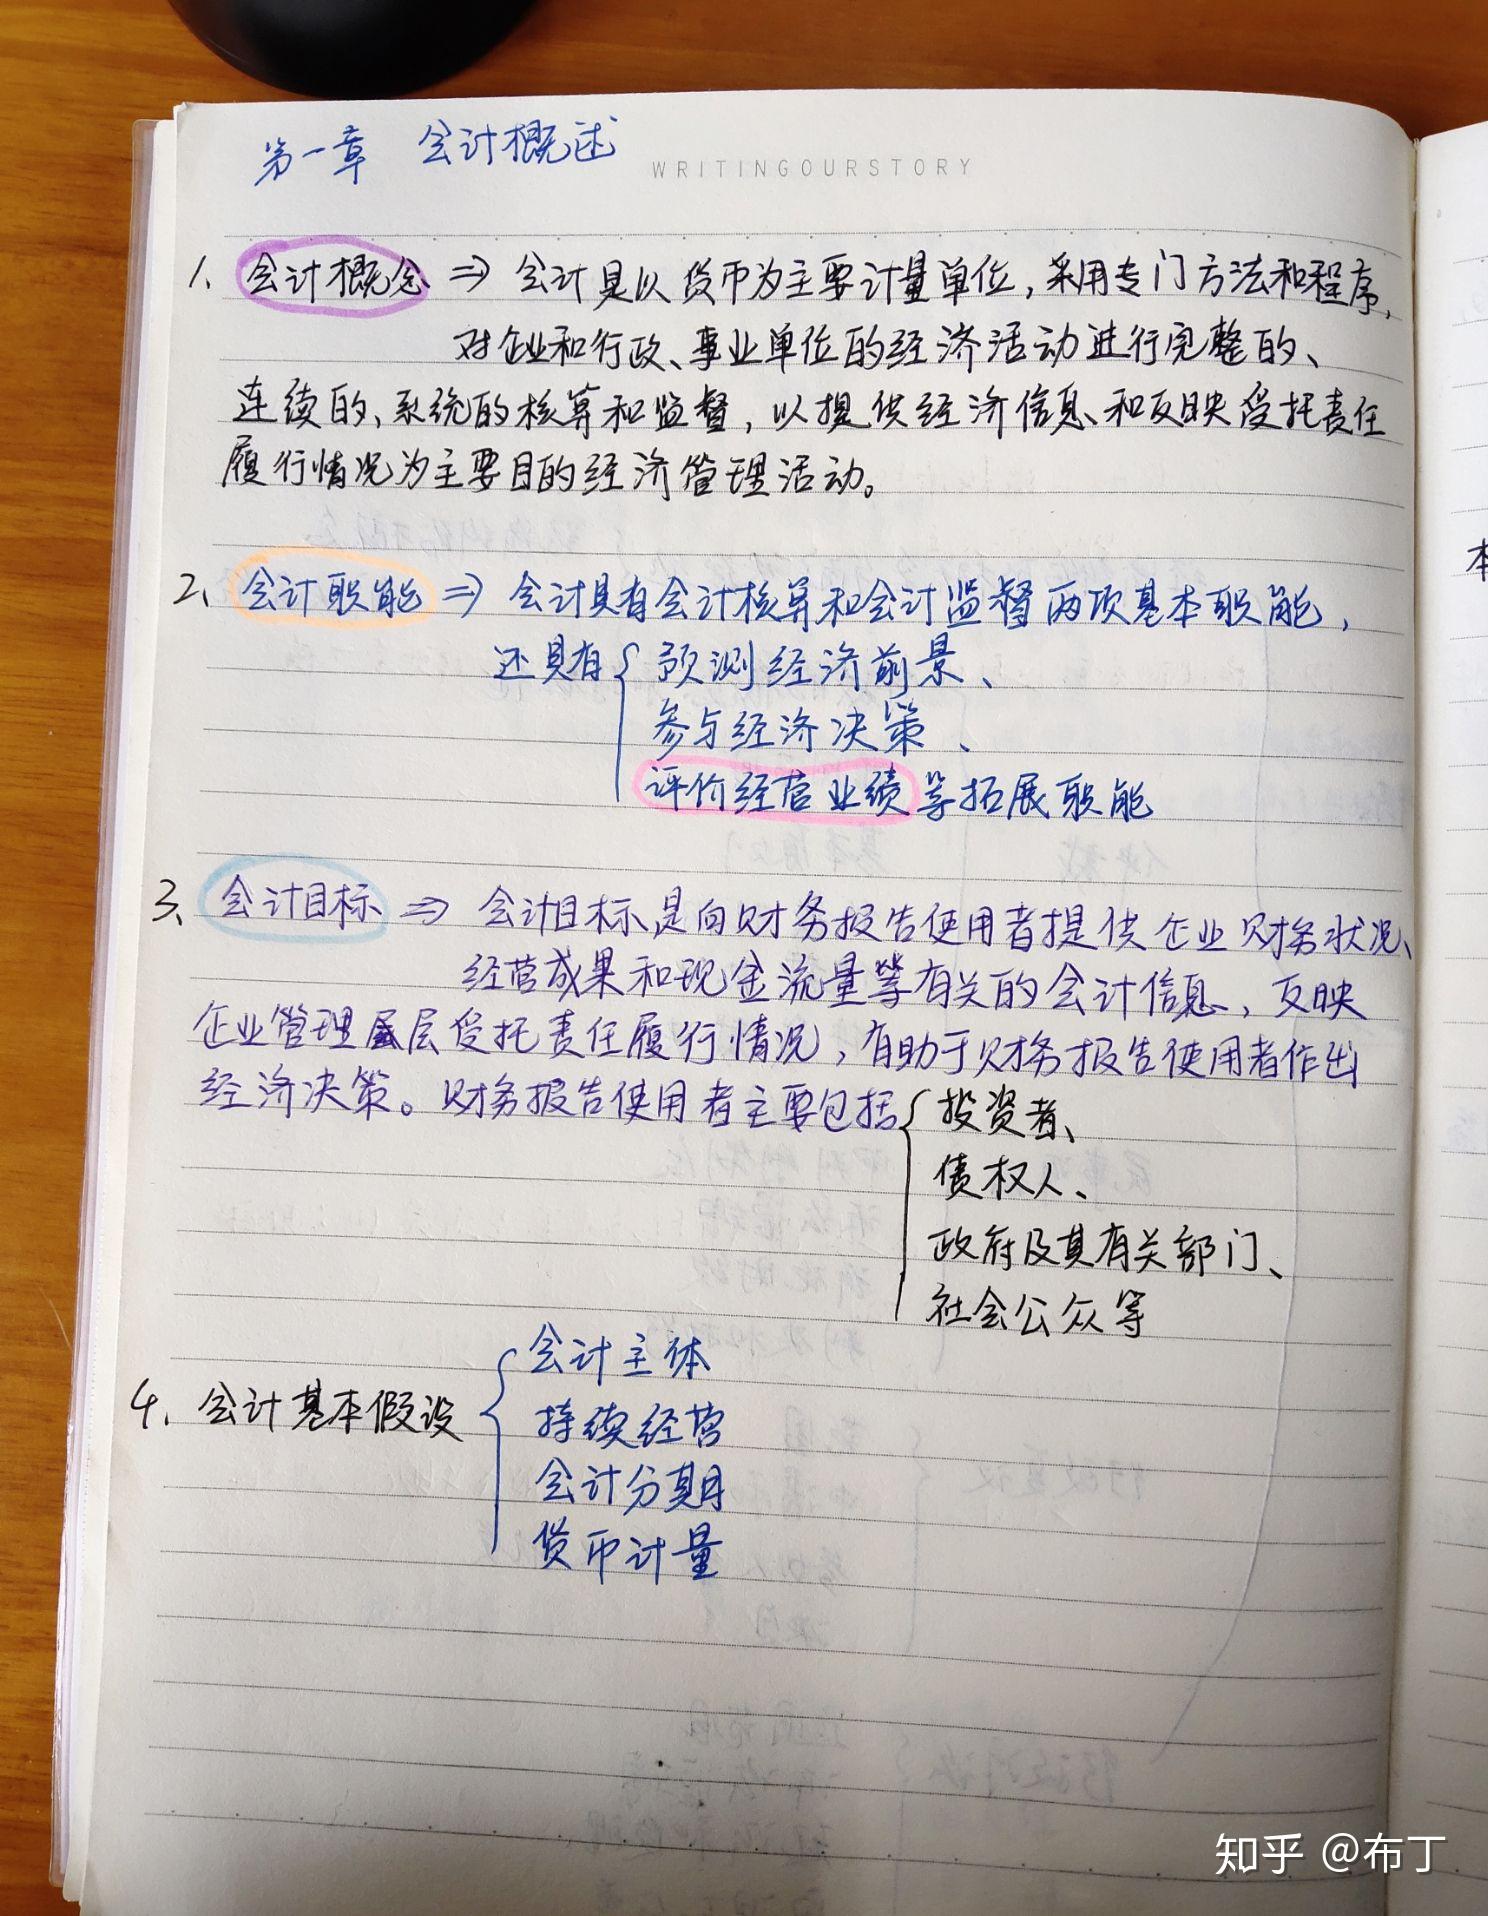 第一章 会计概述
WRITINGOURSTORY
1、会计概念 ⇒ 会计是以货币为主要计量单位，采用专门方法和程序，
对企业和行政、事业单位的经济活动进行完整的、
连续的、系统的核算和监督，以提供经济信息和反映受托责任
履行情况为主要目的经济管理活动。
2、会计职能 ⇒ 会计具有会计核算和会计监督两项基本职能，
还具有{ 预测经济前景、
参与经济决策、
评价经营业绩等拓展职能
3、会计目标 ⇒ 会计目标,是向财务报告使用者提供企业财务状况、
经营成果和现金流量等有关的会计信息，反映
企业管理层受托责任履行情况，有助于财务报告使用者作出
经济决策。财务报告使用者主要包括{ 投资者、
债权人、
政府及其有关部门、
社会公众等
4、会计基本假设{ 会计主体
持续经营
会计分期
货币计量
本
知乎 @布丁